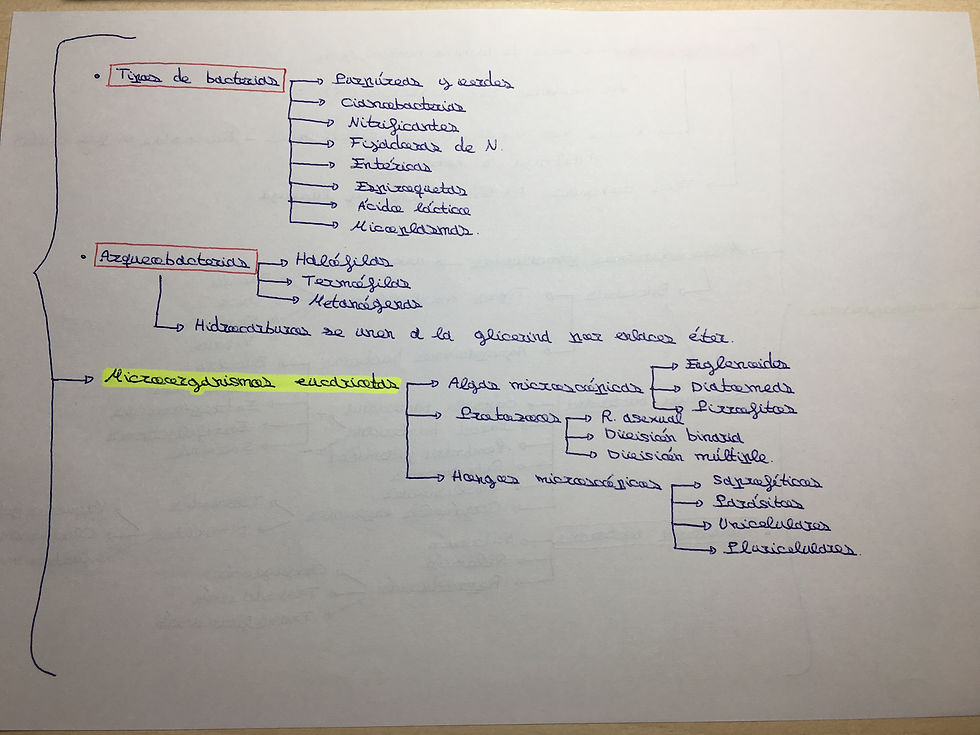 • Tipos de bacterias
Purpúreas y verdes
Cianobacterias
Nitrificantes
Fijadoras de N.
Entéricas
Espiroquetas
Ácido láctico
Micoplasmas.
• Arqueobacterias
Halófilas
Termófilas
Metanógenas
Hidrocarburos se unen a la glicerina por enlaces éter.
Microorganismos eucariotas
Algas microscópicas
Euglenoides
Diatomeas
Pirrofitas
Protozoos
R. asexual
División binaria
División múltiple.
Hongos microscópicos
Saprofíticos
Parásitos
Unicelulares
Pluricelulares.